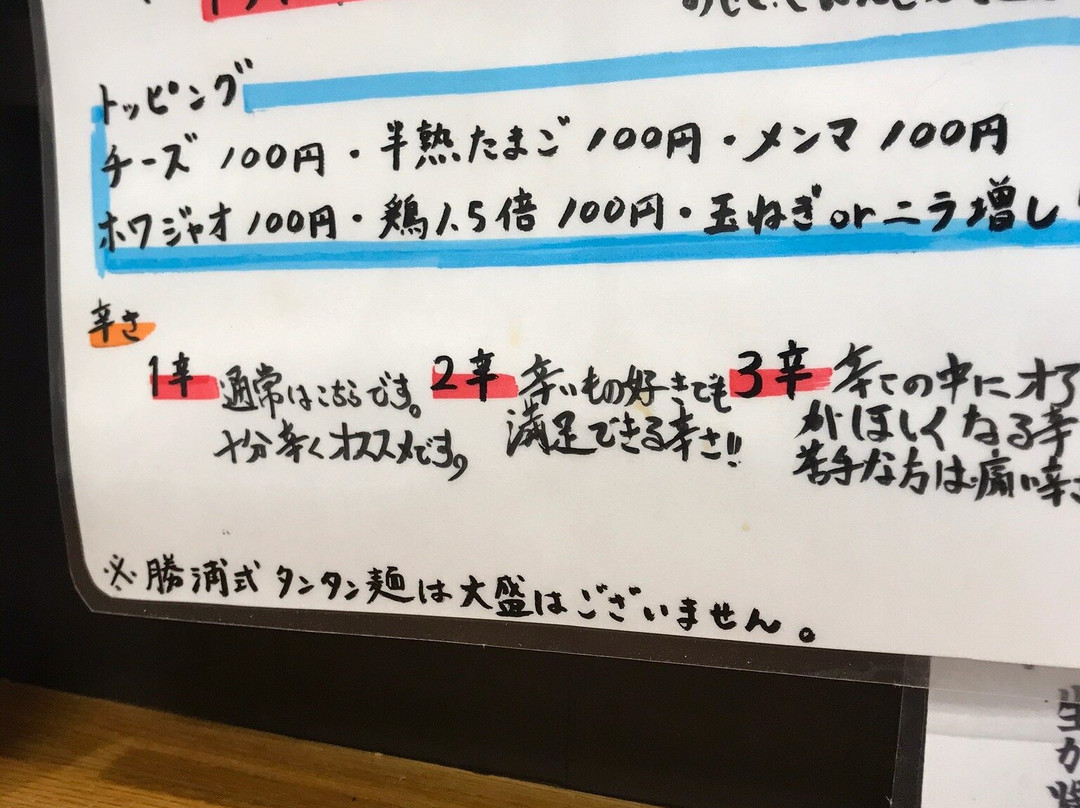 トッピング
チーズ 100円・半熟たまご 100円・メンマ 100円
ホワジャオ 100円・鶏1.5倍 100円・玉ねぎorニラ増し
辛さ
1辛 通常はこちらです。
十分辛くオススメです。
2辛 辛いもの好きでも
満足できる辛さ!!
3辛 辛さの中に
がほしくなる辛
苦手な方は痛い辛さ
※勝浦式タンタン麺は大盛はございません。